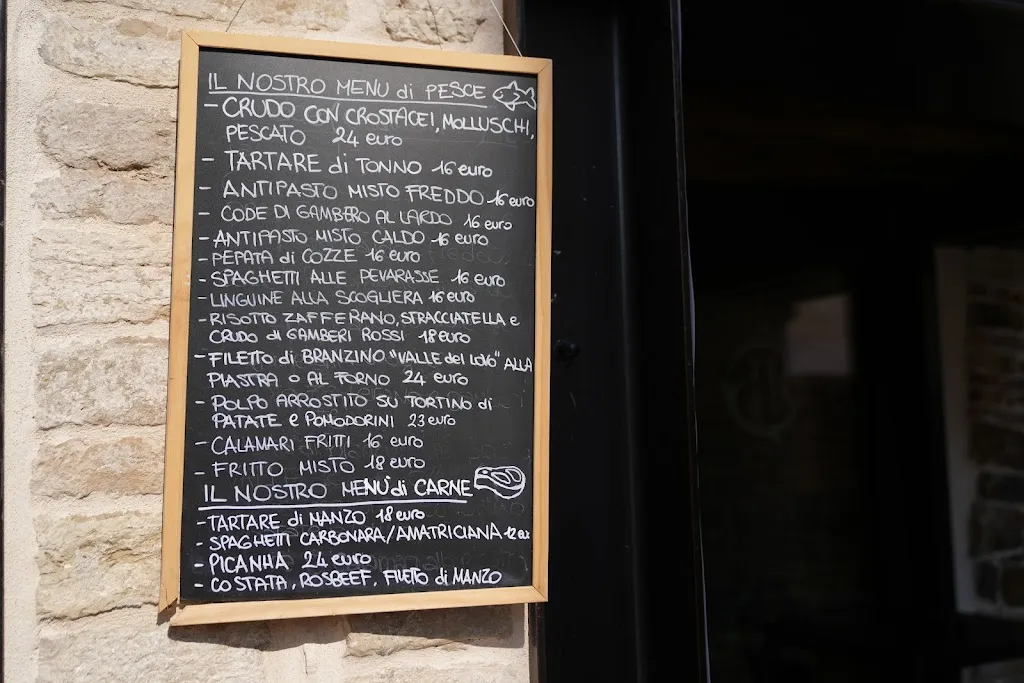 IL NOSTRO MENU di PESCE
- CRUDO CON CROSTACEI, MOLLUSCHI,
PESCATO 24 euro
- TARTARE di TONNO 16 euro
- ANTIPASTO MISTO FREDDO 16 euro
- CODE DI GAMBERO AL LARDO 16 euro
- ANTIPASTO MISTO CALDO 16 euro
- PEPATA di COZZE 16 euro
- SPAGHETTI ALLE PEVARASSE 16 euro
- LINGUINE ALLA SCOGLIERA 16 euro
- RISOTTO ZAFFERANO, STRACCIATELLA e
CRUDO di GAMBERI ROSSI 18 euro
- FILETTO di BRANZINO "VALLE del LOVO" ALLA
PIASTRA O AL FORNO 24 euro
- POLPO ARROSTITO SU TORTINO di
PATATE e POMODORINI 23 euro
- CALAMARI FRITTI 16 euro
- FRITTO MISTO 18 euro
IL NOSTRO MENÙ di CARNE
- TARTARE di MANZO 18 euro
- SPAGHETTI CARBONARA/AMATRICIANA 12 eur
- PICANHA 24 euro
- COSTATA, ROSBEEF, FILETTO di MANZO